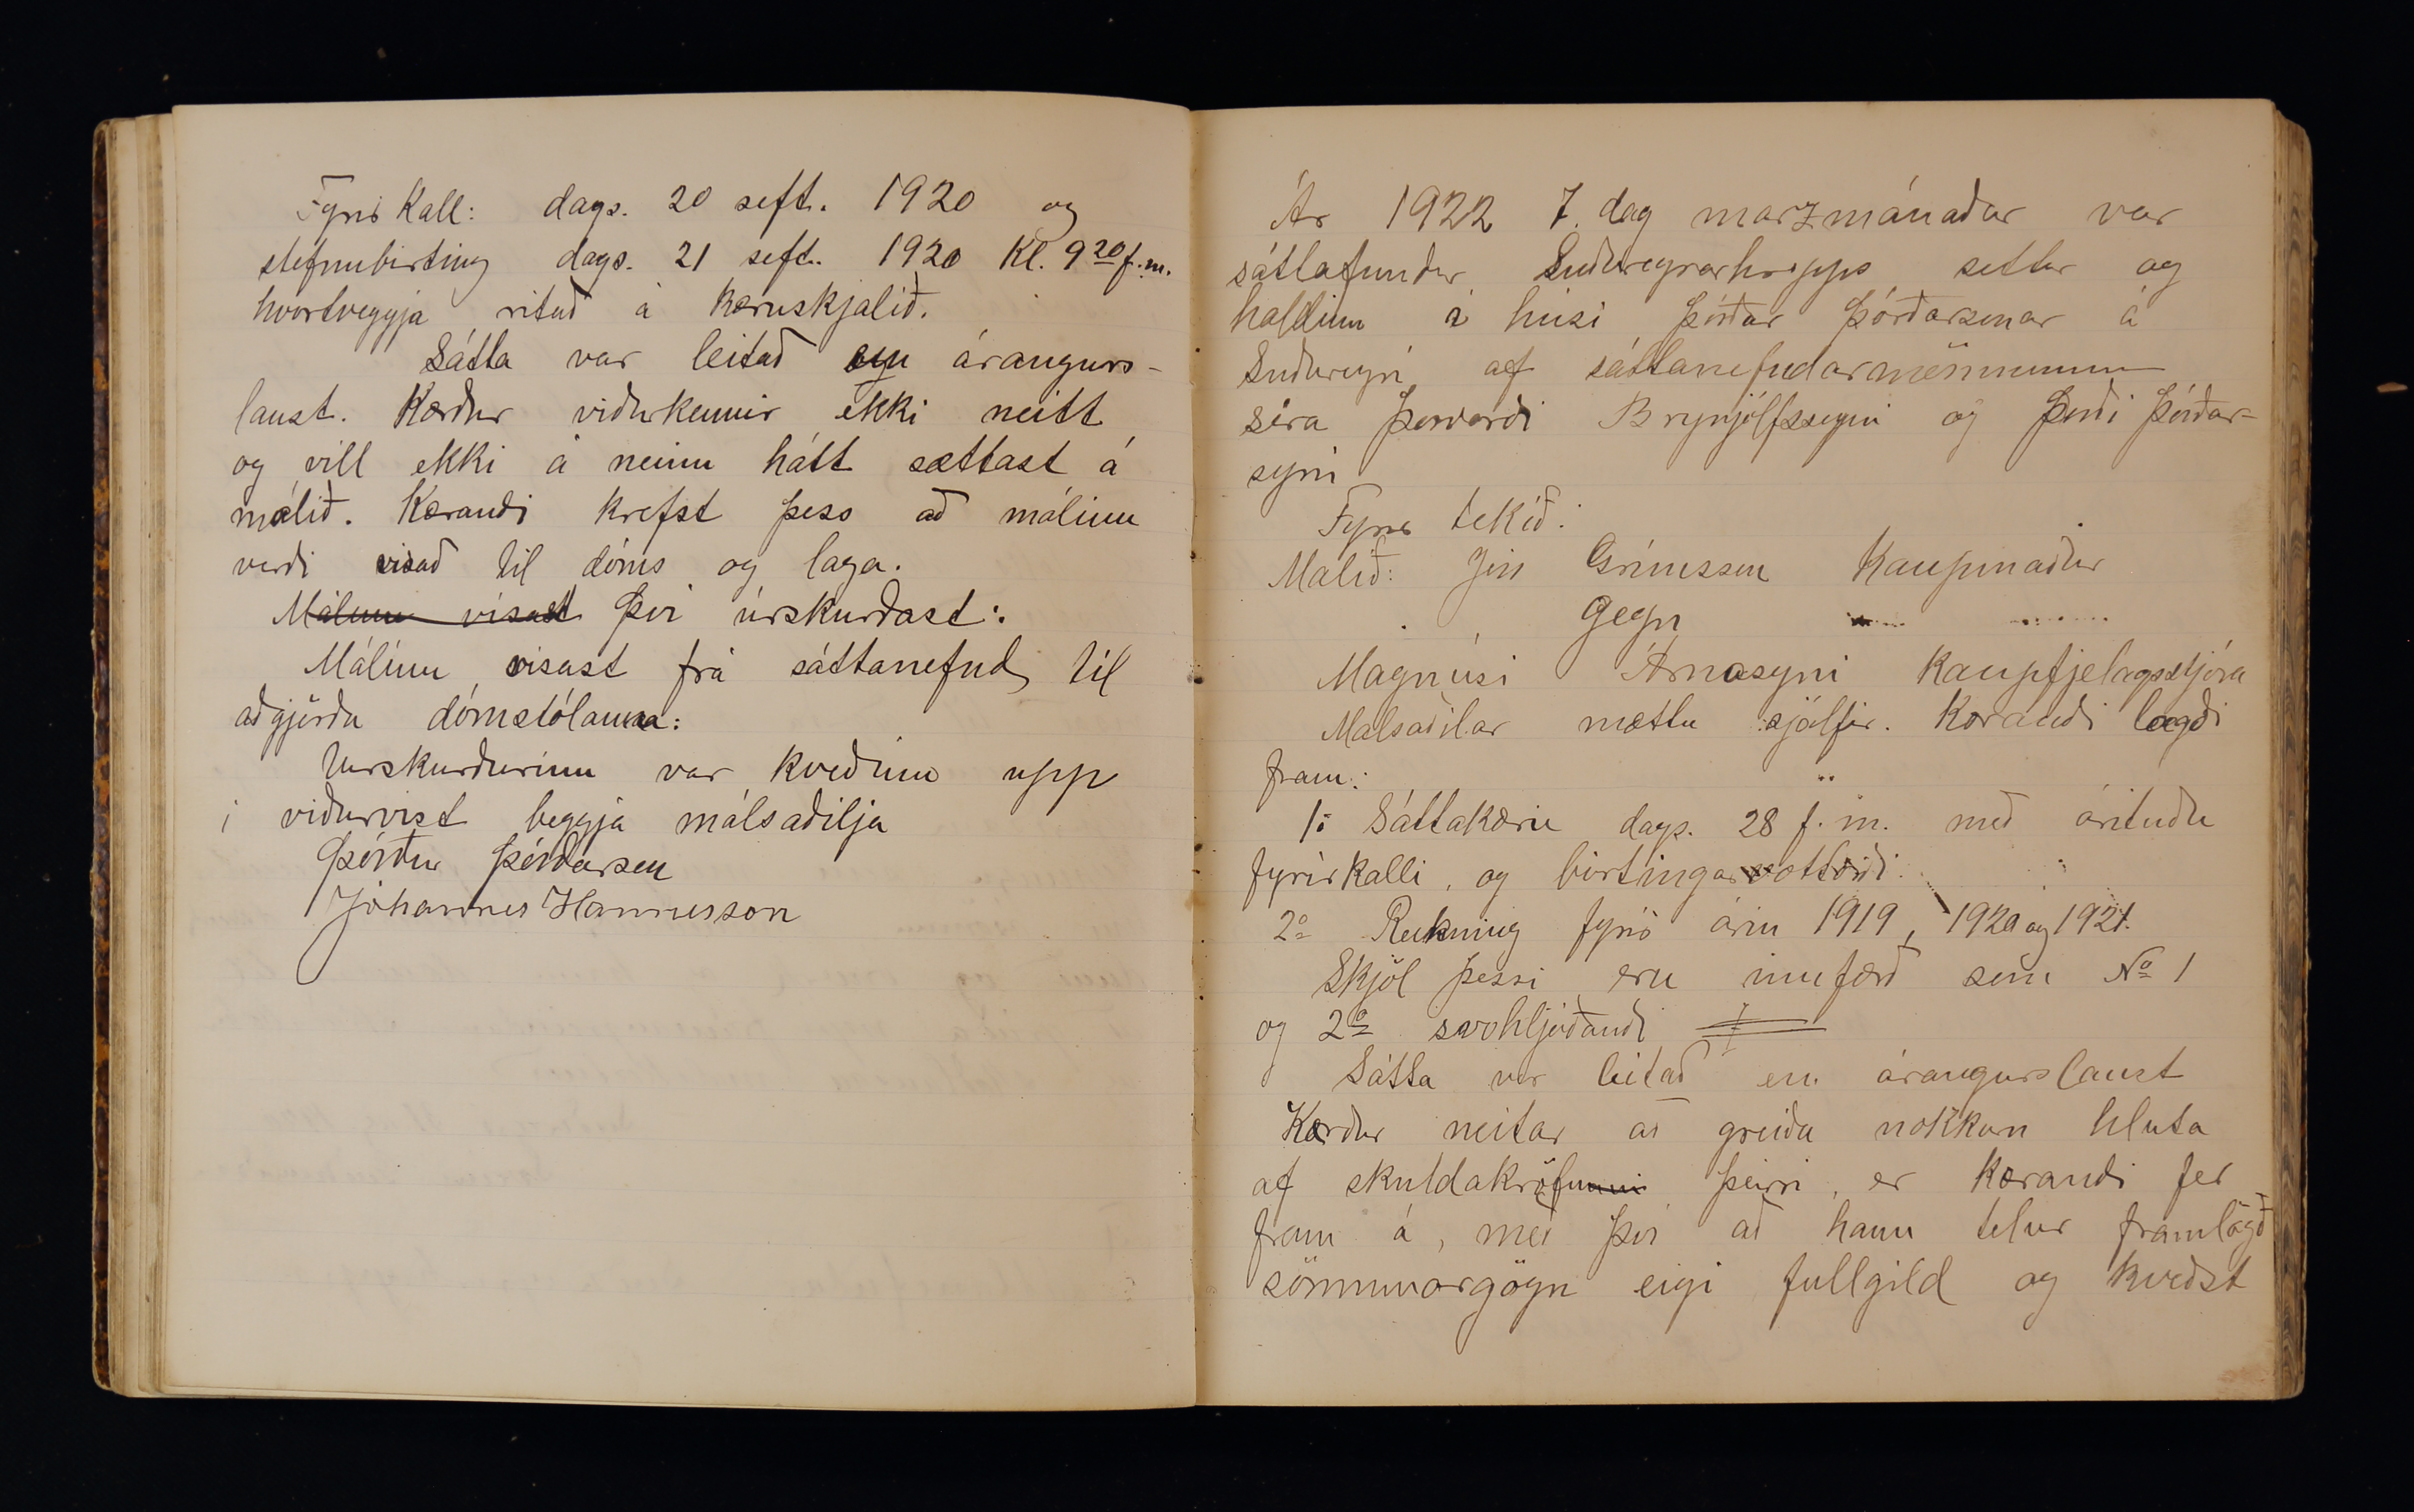 Fyrir Kall: dags. 20 seft. 1920 og
stefnubirting dags. 21 seft. 1920 Kl. 9 20 f.m.
hvortveggja ritað á kæruskjalið.
Sátta var leitað en árangurs-
laust. Kærður viðurkennir ekki neitt
og vill ekki á neinn hátt sættast á
málið. Kærandi krefst þess að málinu
verði vísað til dóms og laga.
Málinu vísast því úrskurðast:
Málinu vísast frá sáttanefnd til
aðgjörða dómstólanna:
Úrskurðurinn var kveðinn upp
í viðurvist beggja málsaðilja
Þórður Þórðarson
Jóhannes Hannesson
Ár 1922 7. dag marzmánaðar var
sáttafundur Suðureyrarhrepps settur og
haldinn í húsi Þórðar Þórðarsonar á
Suðureyri af sáttanefndarmönnunum
síra Þorvarði Brynjólfssyni og Þórði Þórðar-
syni
Fyrir tekið:
Málið: Jón Grímsson Kaupmaður
gegn
Magnúsi Árnasyni kaupfjelagsstjóra
Málsaðilar mættu sjálfir. Kærandi lagði
fram:
1o Sáttakæru dags. 28 f.m. með árituðu
fyrirkalli, og birtingarvottorði.
2o Reikning fyrir árin 1919, 1920 og 1921.
Skjöl þessi eru innfærð sem No 1
og 2o svohljóðandi
Sátta var leitað en árangurslaust
Kærður neitar að greiða nokkurn hluta
af skuldakröfunni þeirri, er kærandi fer
fram á, með því að hann telur framlögð
sönnunargögn eigi fullgild og kveðst